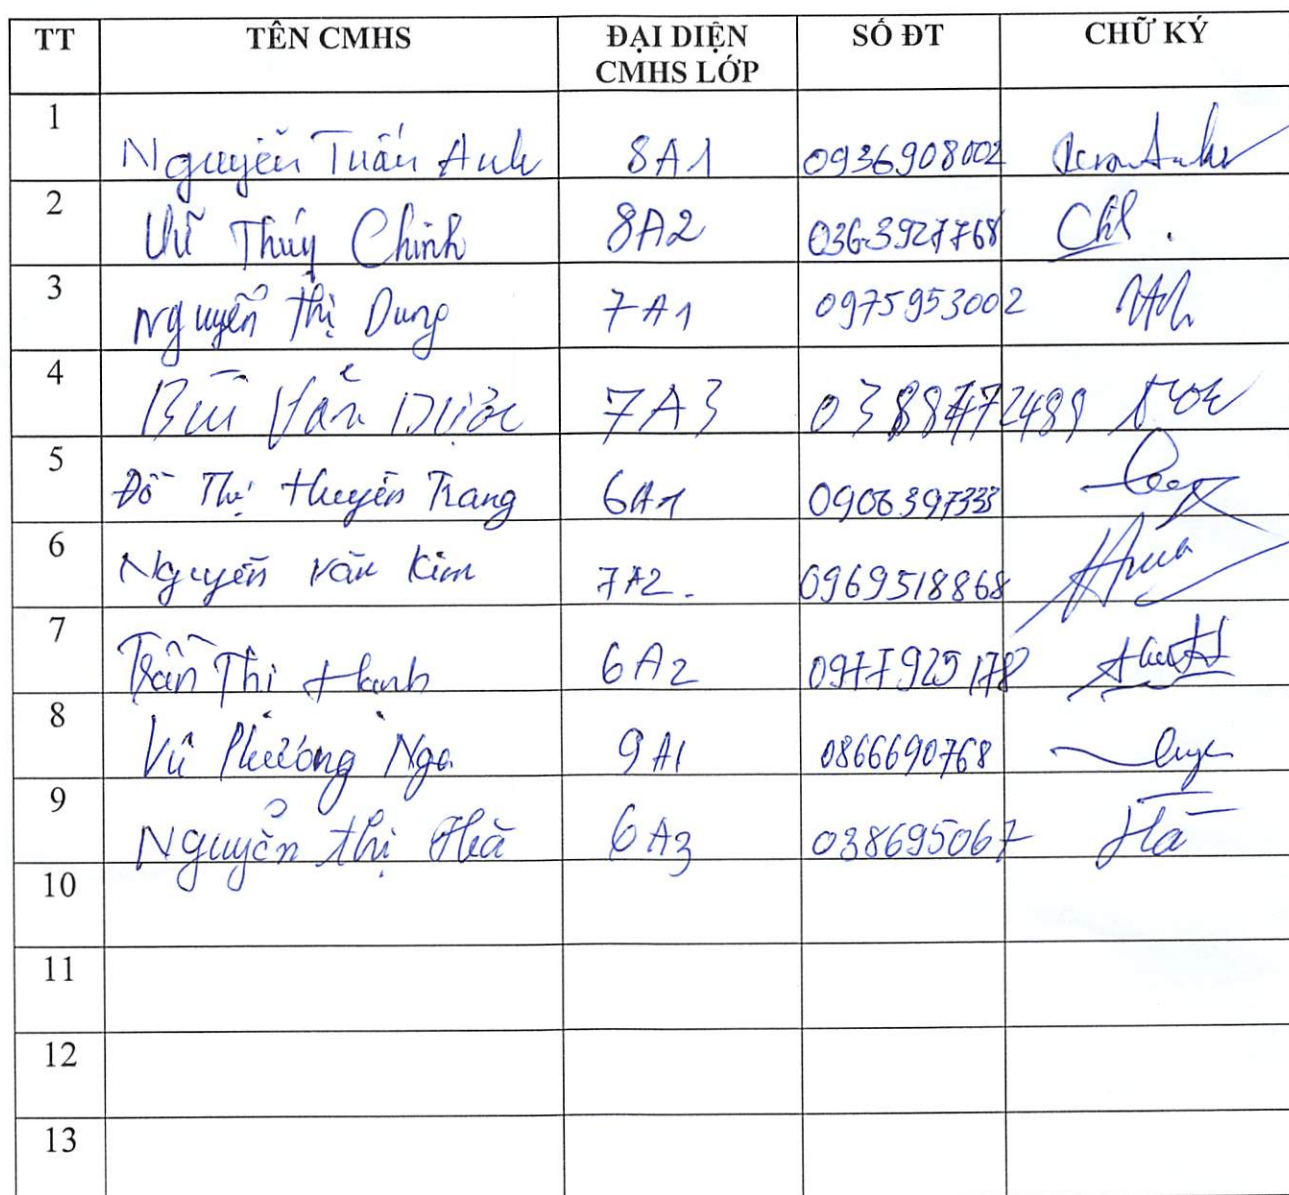 TT TÊN CMHS ĐẠI DIỆN CMHS LỚP SỐ ĐT CHỮ KÝ
1 Nguyễn Tuấn Anh 8A1 0936908002
2 Vũ Thúy Chinh 8A2 0363927768
3 Nguyễn Thị Dung 7A1 0975953002
4 Bùi Văn Dược 7A3
5 Đỗ Thị Huyền Trang 6A1 0906397333
6 Nguyễn Văn Kim 7A2. 0969518868
7 Trần Thị Hạnh 6A2 0977925178
8 Vũ Phương Nga 9A1 0866690768
9 Nguyễn Thị Hà 6A3 038695067 Hà
10
11
12
13